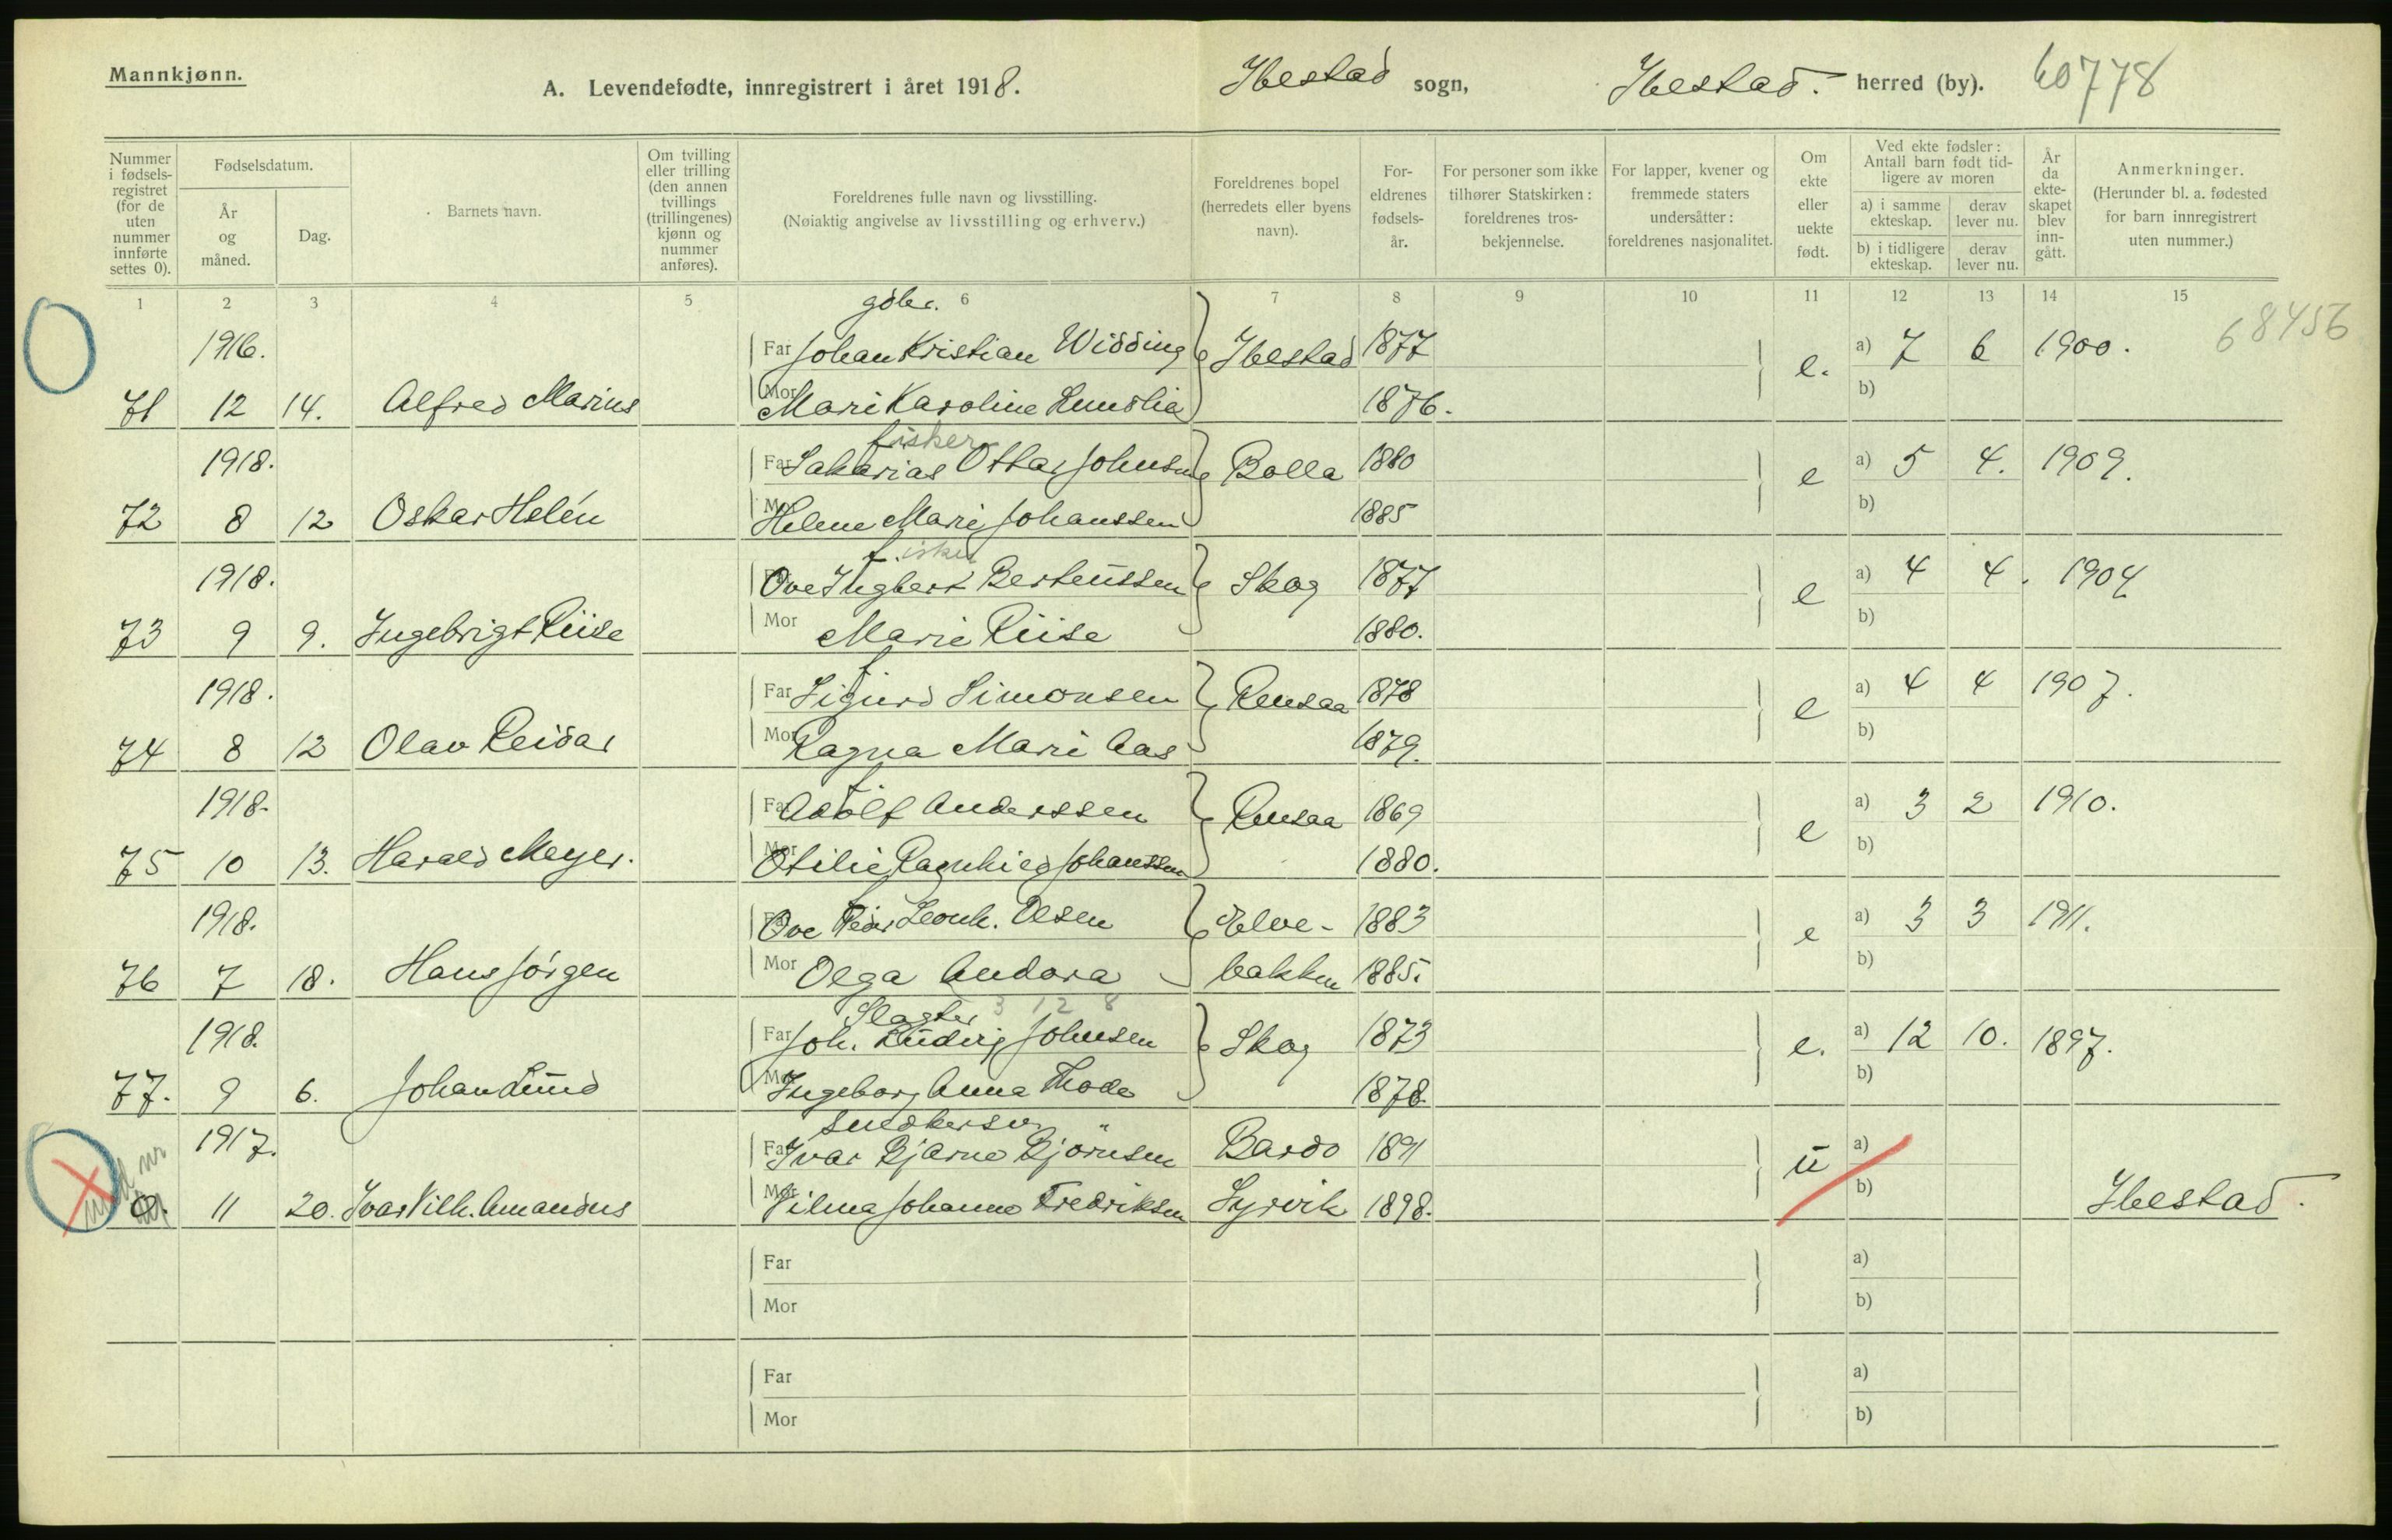 Mannkjønn.
A. Levendefødte, innregistrert i året 1918.
Ibestad sogn, Ibestad. herred (by). 60778
Nummer i fødselsregistret (for de uten nummer innførte settes 0).
Fødselsdatum.
År og måned.
Dag.
Barnets navn.
Om tvilling eller trilling (den annen tvillings (trillingenes) kjønn og nummer anføres).
Foreldrenes fulle navn og livsstilling.
(Nøiaktig angivelse av livsstilling og erhverv.)
Foreldrenes bopel (herredets eller byens navn).
Foreldrenes fødselsår.
For personer som ikke tilhører Statskirken: foreldrenes trosbekjennelse.
For lapper, kvener og fremmede staters undersåtter: foreldrenes nasjonalitet.
Om ekte eller uekte født.
Ved ekte fødsler: Antall barn født tidligere av moren
a) i samme ekteskap. derav lever nu.
b) i tidligere ekteskap. derav lever nu.
År da ekteskapet blev inngått.
Anmerkninger.
(Herunder bl. a. fødested for barn innregistrert uten nummer.)
1 2 3 4 5 6 7 8 9 10 11 12 13 14 15
gbr.
1916. Far Johan Kristian Widding Ibestad 1877 e. a) 7 6 1900. 68456
71 12 14. Alfred Marius Mor Mari Karoline 1876. b)
fisker
1918. Far Sakarias Ottar Johnsen Bolla 1880 e a) 5 4. 1909.
72 8 12 Oskar Helén Mor Helene Marie Johanssen 1885 b)
f. isker
1918. Far Ove Ingbert Berteussen Skog 1877 e a) 4 4. 1904
73 9 9. Ingebrigt Riise Mor Marie Riise 1880. b)
f
1918. Far Sigurd Simonsen Rensaa 1878 e a) 4 4 1907.
74 8 12 Olav Reidar Mor Ragna Marie Aas 1879. b)
f
1918. Far Adolf Anderssen Rensaa 1869 e a) 3 2 1910.
75 10 13. Harald Meyer. Mor Otilie Ragnhild Johanssen 1880. b)
f
1918. Far Ove Peder Leonh. Olsen Elve- 1883 e a) 3 3 1911.
76 7 18. Hans Jörgen Mor Olga Andora bakken 1885. b)
Slagter 3 12 8
1918. Far Joh. Ludvig Johnsen Skog 1873 e. a) 12 10. 1897.
77. 9 6. Johan Lund Mor Ingeborg Anna Thode 1878. b)
snedkersv.
1917. Far Ivar Bjarne Björnsen Bardo 1891 u a)
0. 11 20. Ivar Vilh. Amandus Mor Vilma Johanne Fredriksen Syrvik 1898. b) Ibestad.
Far a)
Mor b)
Far a)
Mor b)